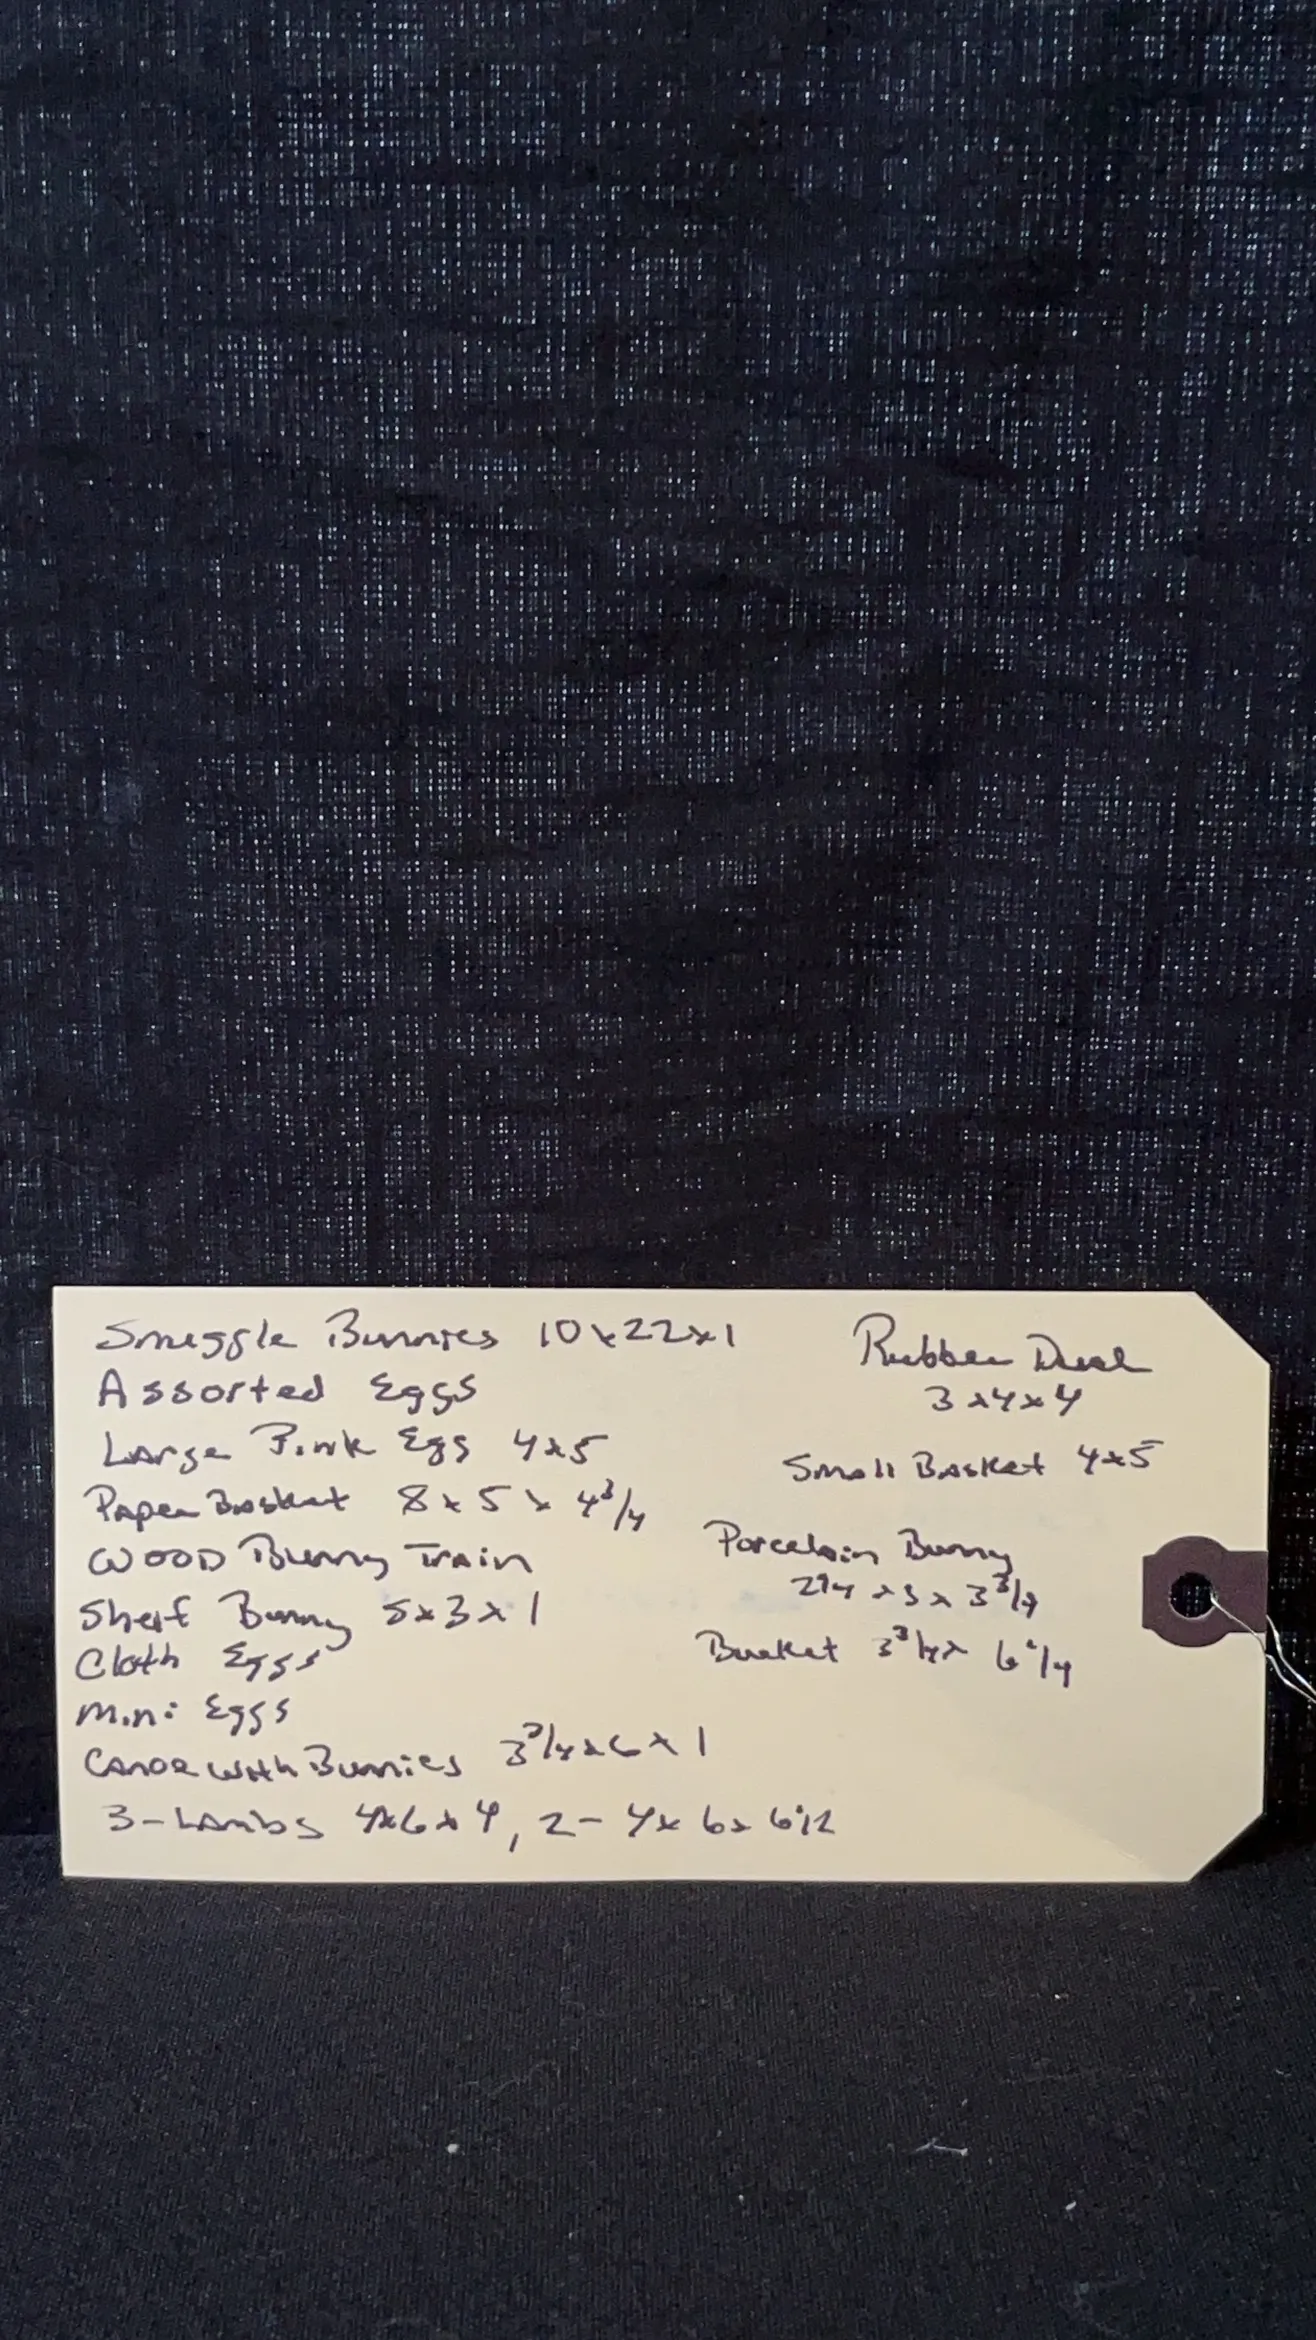 Snuggle Bunnies 10x22x1
Assorted Eggs
Large Pink Egg 4x5
Paper Basket 8x5x4 3/4
WOOD Bunny Train
Shelf Bunny 5x3x1
Cloth Eggs
Mini Eggs
Canoe with Bunnies 3 3/4x6x1
3-Lambs 4x6x4, 2- 4x6x6 1/2
Rubber Duck
3x4x4
Small Basket 4x5
Porcelain Bunny
x3x3 3/4
Bucket 3 3/4x 6 1/4